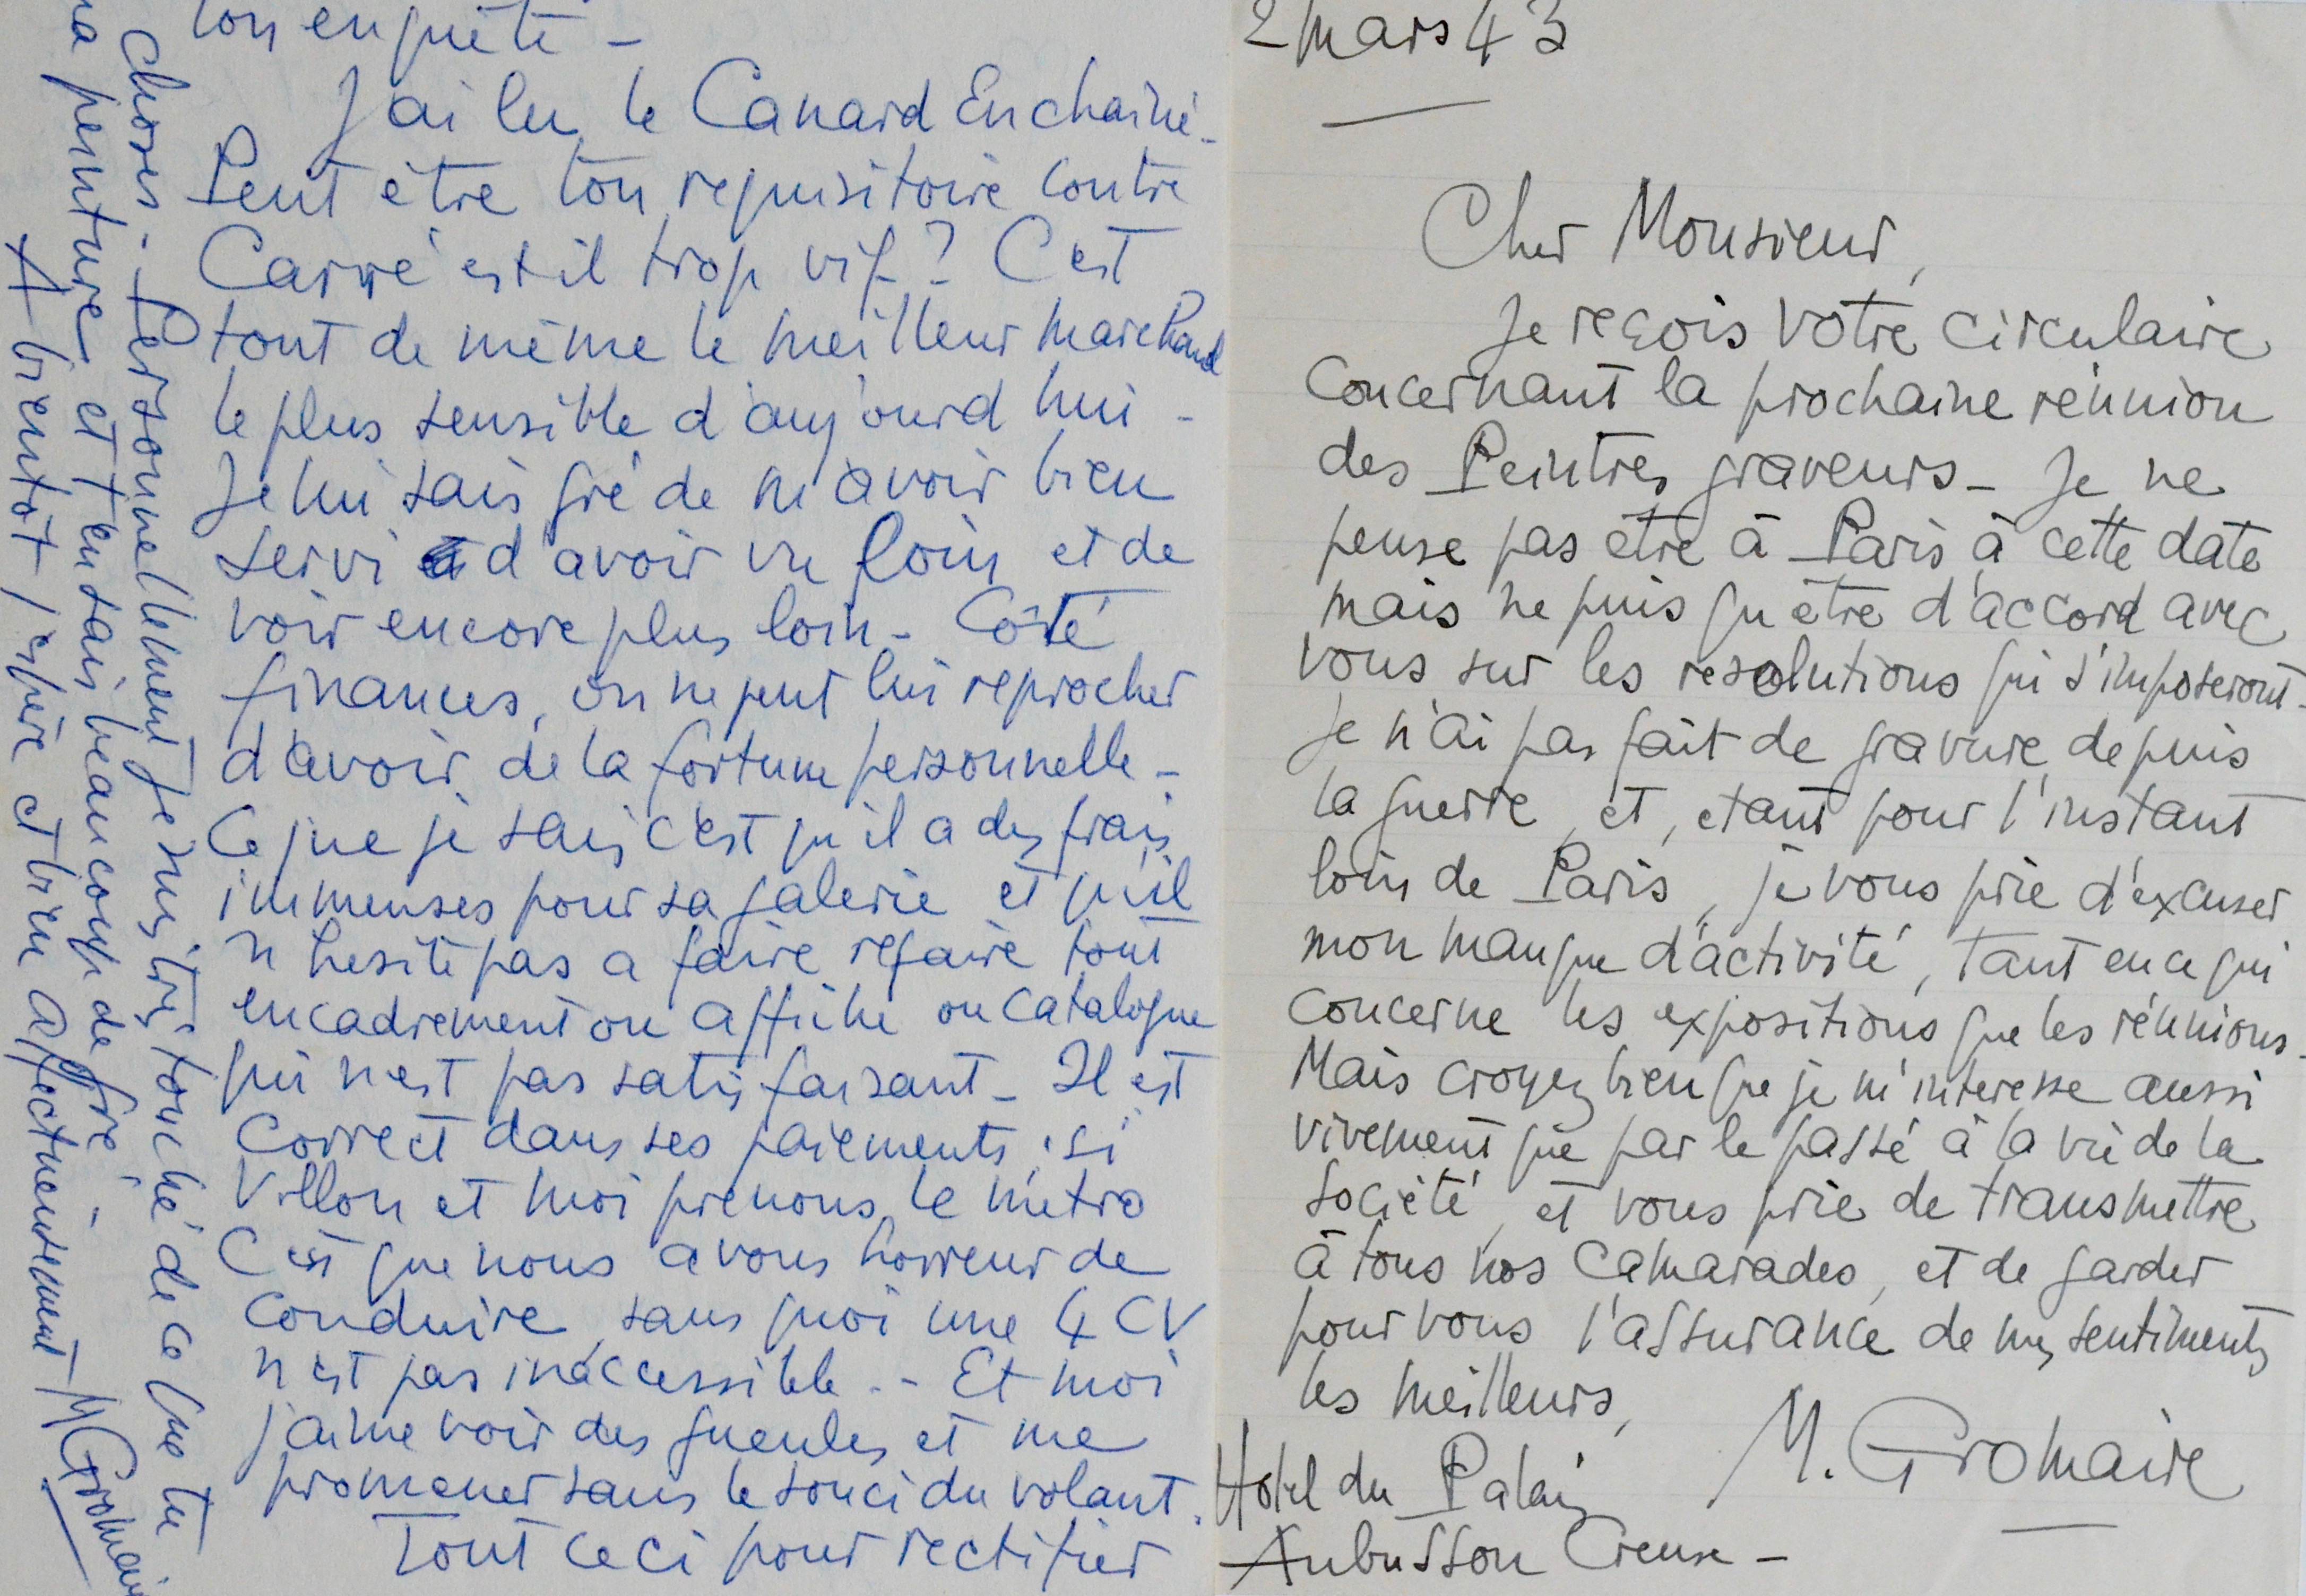 ton enquête -
J'ai lu le Canard Enchainé -
Peut être ton requisitoire contre
Carré est il trop vif ? C'est
tout de même le meilleur marchand
le plus sensible d'aujourd'hui -
Je lui sais gré de m'avoir bien
servi d'avoir vu loin et de
voir encore plus loin - Côté
finances, on ne peut lui reprocher
d'avoir de la fortune personnelle -
Ce que je sais c'est qu'il a des frais
immenses pour sa galerie et qu'il
n'hesite pas a faire refaire tout
encadrement ou affiche ou catalogue
qui n'est pas satisfaisant - Il est
correct dans ses paiements ; si
Villon et moi prenons le métro
C'est que nous avons horreur de
conduire, sans quoi une 4 CV
n'est pas inaccessible. - Et moi
j'aime voir des gueules et me
promener sans le souci du volant.
Tout ceci pour rectifier
choses - Personnellement je suis très touché de ce que tu
ma peinture et t'en sais beaucoup de gré -
A bientôt j'espère et bien affectueusement - MGromaire
2 mars 43
Cher Monsieur,
Je reçois votre circulaire
concernant la prochaine réunion
des Peintres graveurs - Je ne
pense pas être à Paris à cette date
mais ne puis qu'être d'accord avec
vous sur les resolutions qui s'imposeront -
Je n'ai pas fait de gravure depuis
la guerre, et, etant pour l'instant
loin de Paris, je vous prie d'excuser
mon manque d'activité, tant en ce qui
concerne les expositions que les réunions -
Mais croyez bien que je m'interesse aussi
vivement que par le passé à la vie de la
Société, et vous prie de transmettre
à tous nos camarades, et de garder
pour vous l'assurance de mes sentiments
les meilleurs,
M. Gromaire
Hotel du Palais
Aubusson Creuse -